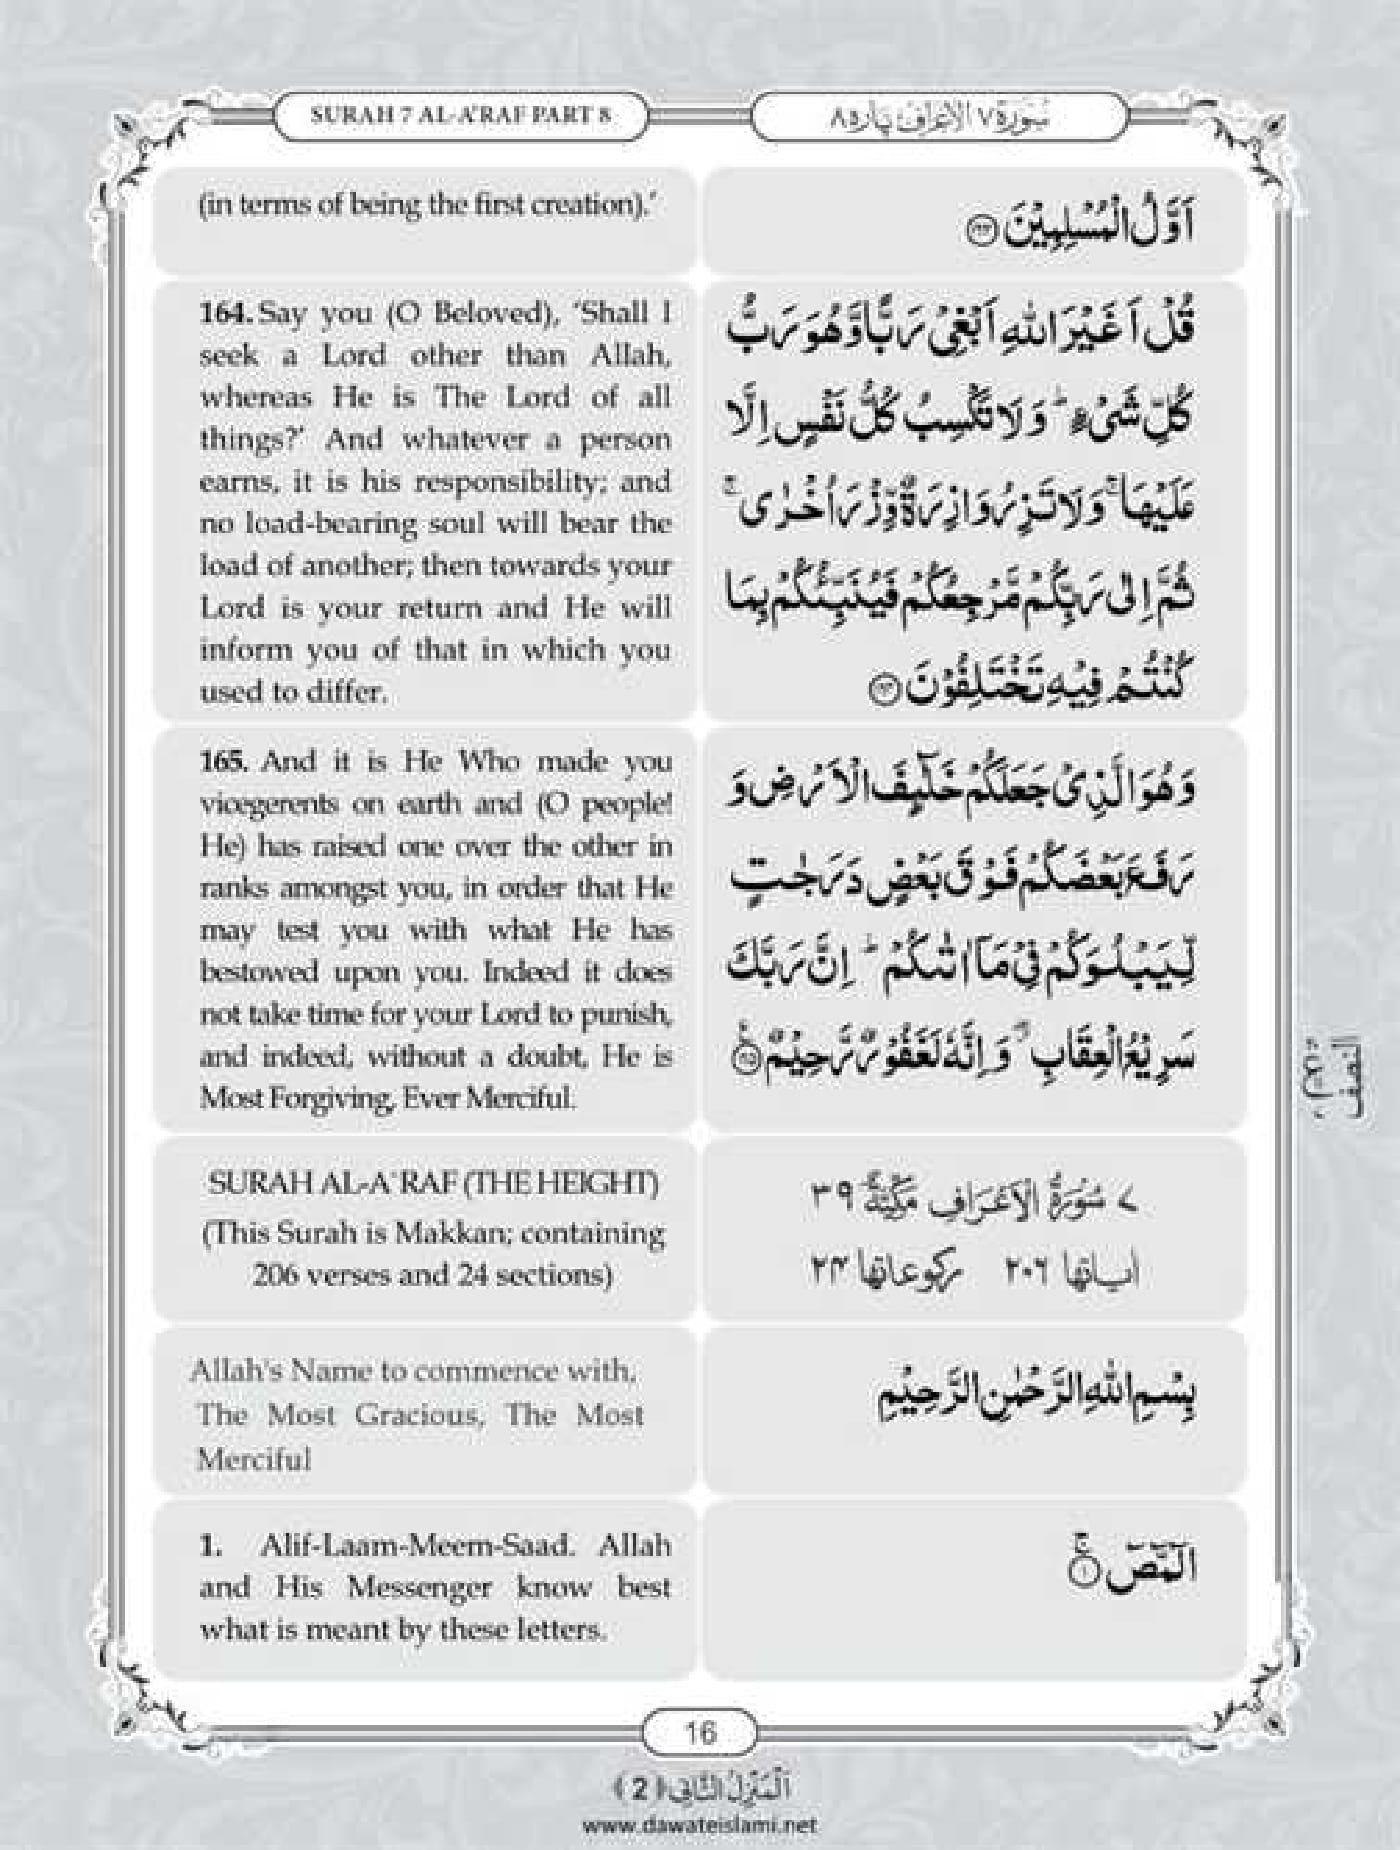 SURAH 7 AL-A'RAF PART 8
سُوْرَةُ ٧ الْاَعْرَاف پارہ ٨
(in terms of being the first creation).'
اَوَّلُ الْمُسْلِمِيْنَ ﴿۱۶۳﴾
164. Say you (O Beloved), 'Shall I
seek a Lord other than Allah,
whereas He is The Lord of all
things?' And whatever a person
earns, it is his responsibility; and
no load-bearing soul will bear the
load of another; then towards your
Lord is your return and He will
inform you of that in which you
used to differ.
قُلْ اَغَيْرَ اللّٰهِ اَبْغِیْ رَبًّا وَّهُوَ رَبُّ
كُلِّ شَیْءٍ ؕ وَ لَا تَكْسِبُ كُلُّ نَفْسٍ اِلَّا
عَلَيْهَا ۚ وَ لَا تَزِرُ وَازِرَةٌ وِّزْرَ اُخْرٰی ۚ
ثُمَّ اِلٰی رَبِّكُمْ مَّرْجِعُكُمْ فَيُنَبِّئُكُمْ بِمَا
كُنْتُمْ فِيْهِ تَخْتَلِفُوْنَ ﴿۱۶۴﴾
165. And it is He Who made you
vicegerents on earth and (O people!
He) has raised one over the other in
ranks amongst you, in order that He
may test you with what He has
bestowed upon you. Indeed it does
not take time for your Lord to punish,
and indeed, without a doubt, He is
Most Forgiving, Ever Merciful.
وَ هُوَ الَّذِیْ جَعَلَكُمْ خَلٰٓئِفَ الْاَرْضِ وَ
رَفَعَ بَعْضَكُمْ فَوْقَ بَعْضٍ دَرَجٰتٍ
لِّيَبْلُوَكُمْ فِیْ مَاۤ اٰتٰىكُمْ ؕ اِنَّ رَبَّكَ
سَرِيْعُ الْعِقَابِ ۖ وَ اِنَّهٗ لَغَفُوْرٌ رَّحِيْمٌ ﴿۱۶۵﴾
SURAH AL-A'RAF (THE HEIGHT)
(This Surah is Makkan; containing
206 verses and 24 sections)
۷ سُوْرَةُ الْاَعْرَافِ مَكِّيَّةٌ ۳۹
اٰیاتها ۲۰۶ ركوعاتها ۲۴
Allah's Name to commence with,
The Most Gracious, The Most
Merciful
بِسْمِ اللّٰهِ الرَّحْمٰنِ الرَّحِيْمِ
1. Alif-Laam-Meem-Saad. Allah
and His Messenger know best
what is meant by these letters.
الٓمّٓصٓ ۚ﴿۱﴾
16
اَلْمَنْزِلُ الثَّانِی ﴿2﴾
www.dawateislami.net